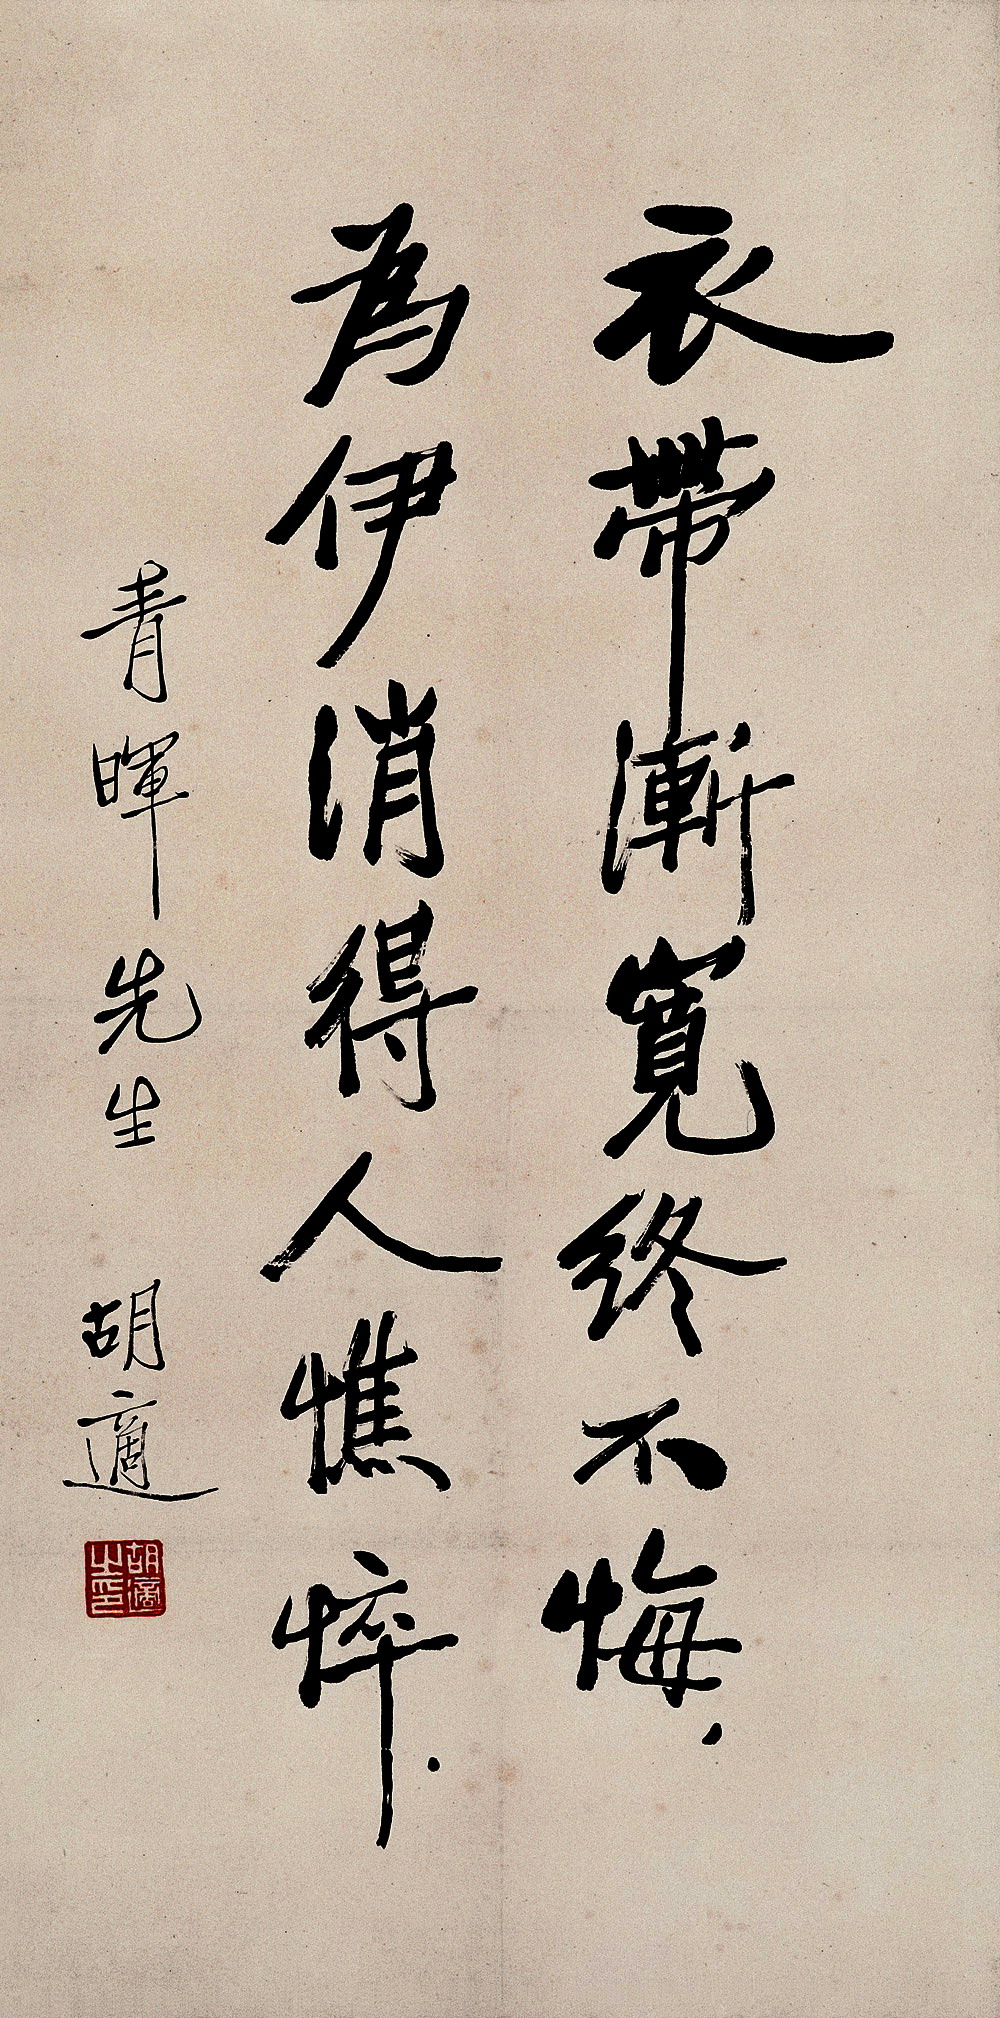 衣帶漸寬終不悔．
為伊消得人憔悴．
青暉先生 胡適
胡適之印